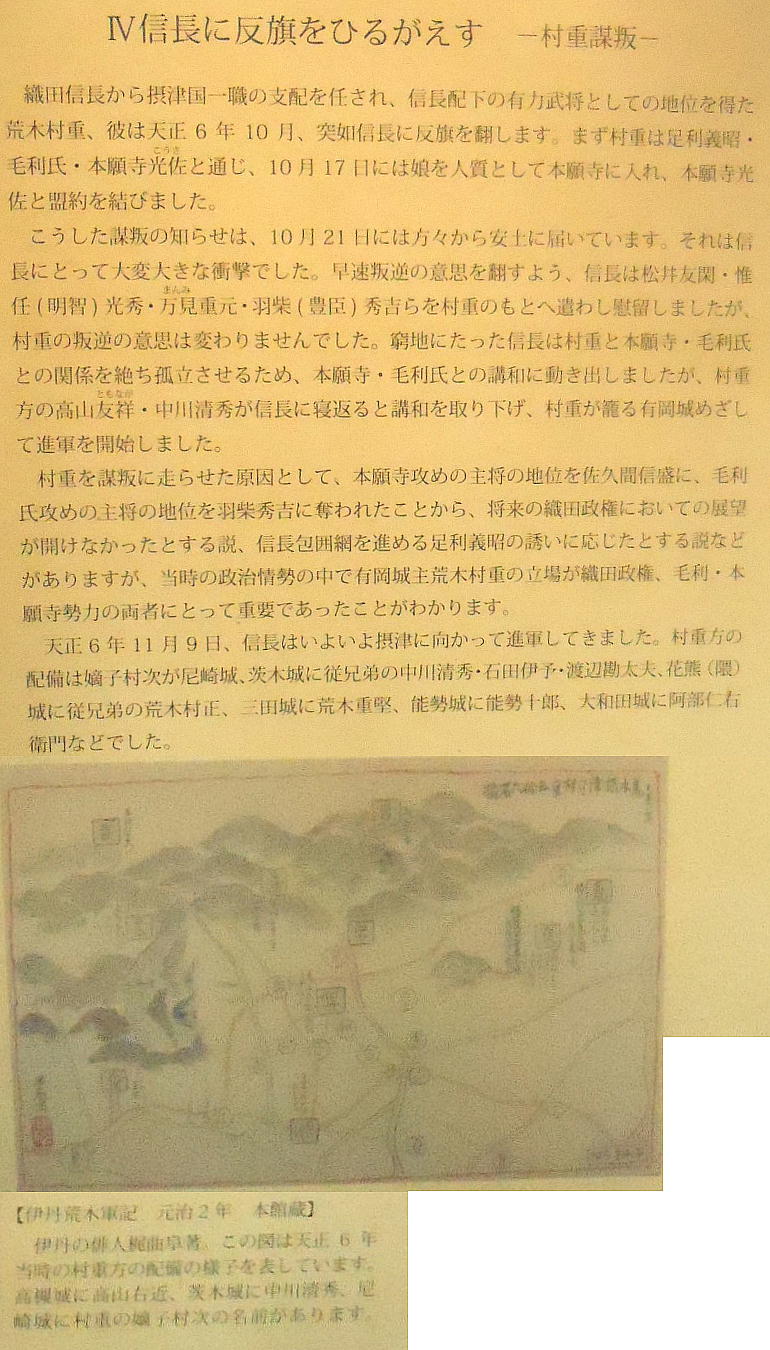 Ⅳ信長に反旗をひるがえす　－村重謀叛－
織田信長から摂津国一職の支配を任され、信長配下の有力武将としての地位を得た
荒木村重、彼は天正 6 年 10 月、突如信長に反旗を翻します。まず村重は足利義昭・
毛利氏・本願寺光佐と通じ、10 月 17 日には娘を人質として本願寺に入れ、本願寺光
こうさ
佐と盟約を結びました。
こうした謀叛の知らせは、10 月 21 日には方々から安土に届いています。それは信
長にとって大変大きな衝撃でした。早速叛逆の意思を翻すよう、信長は松井友閑・惟
任 (明智) 光秀・万見重元・羽柴 (豊臣) 秀吉らを村重のもとへ遣わし慰留しましたが、
まんみ
村重の叛逆の意思は変わりませんでした。窮地にたった信長は村重と本願寺・毛利氏
との関係を絶ち孤立させるため、本願寺・毛利氏との講和に動き出しましたが、村重
方の高山友祥・中川清秀が信長に寝返ると講和を取り下げ、村重が籠る有岡城めざし
ともなが
て進軍を開始しました。
村重を謀叛に走らせた原因として、本願寺攻めの主将の地位を佐久間信盛に、毛利
氏攻めの主将の地位を羽柴秀吉に奪われたことから、将来の織田政権においての展望
が開けなかったとする説、信長包囲網を進める足利義昭の誘いに応じたとする説など
がありますが、当時の政治情勢の中で有岡城主荒木村重の立場が織田政権、毛利・本
願寺勢力の両者にとって重要であったことがわかります。
天正 6 年 11 月 9 日、信長はいよいよ摂津に向かって進軍してきました。村重方の
配備は嫡子村次が尼崎城、茨木城に従兄弟の中川清秀・石田伊予・渡辺勘太夫、花熊（隈）
城に従兄弟の荒木村正、三田城に荒木重堅、能勢城に能勢十郎、大和田城に阿部仁右
衛門などでした。
【伊丹荒木軍記　元治2年　本館蔵】
伊丹の俳人梶曲阜著。この図は天正 6 年
当時の村重方の配備の様子を表しています。
高槻城に高山右近、茨木城に中川清秀、尼
崎城に村重の嫡子村次の名前があります。